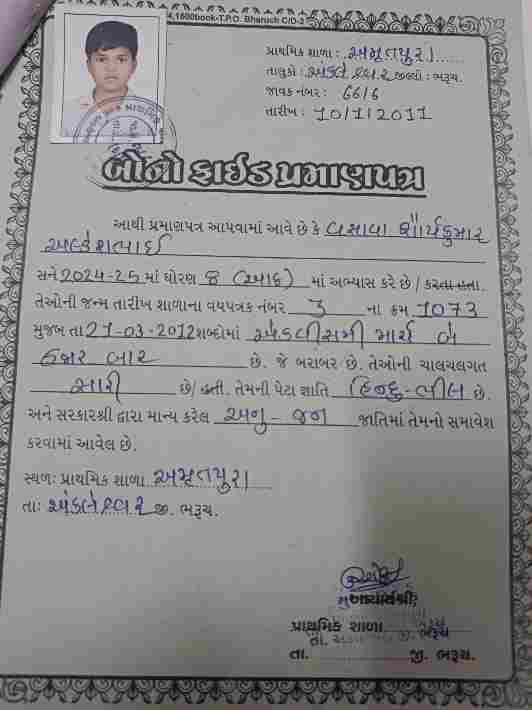 4,1600book-T.P.O. Bharuch C/D-2
પ્રાથમિક શાળા : અમૃતપુરા
તાલુકો : અંકલેશ્વર જીલ્લો : ભરૂચ.
જાવક નંબર : 66/6
તારીખ : 10/1/2011
બોનો ફાઈડ પ્રમાણપત્ર
આથી પ્રમાણપત્ર આપવામાં આવે છે કે વસાવા શૌર્યકુમાર
અલ્કેશભાઈ
સને 2024-25 માં ધોરણ 8 (આઠ) માં અભ્યાસ કરે છે / કરતા હતા.
તેઓની જન્મ તારીખ શાળાના વયપત્રક નંબર 3 ના ક્રમ 1073
મુજબ તા 21-03-2012 શબ્દોમાં એકવીસમી માર્ચ બે
હજાર બાર છે. જે બરાબર છે. તેઓની ચાલચલગત
સારી છે/ હતી. તેમની પેટા જ્ઞાતિ હિન્દુ-ભીલ છે.
અને સરકારશ્રી દ્વારા માન્ય કરેલ અનુ-જન જાતિમાં તેમનો સમાવેશ
કરવામાં આવેલ છે.
સ્થળ: પ્રાથમિક શાળા અમૃતપુરા
તાઃ અંકલેશ્વર જી. ભરૂચ.
મુખ્યાચાર્યશ્રી,
પ્રાથમિક શાળા
તા. જી. ભરૂચ
તા. જી. ભરૂચ.